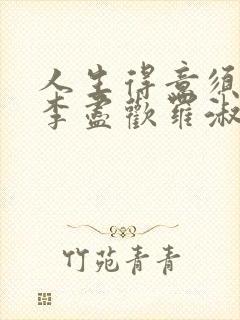 人生得意须
李盡歡羅淑
竹苑青青